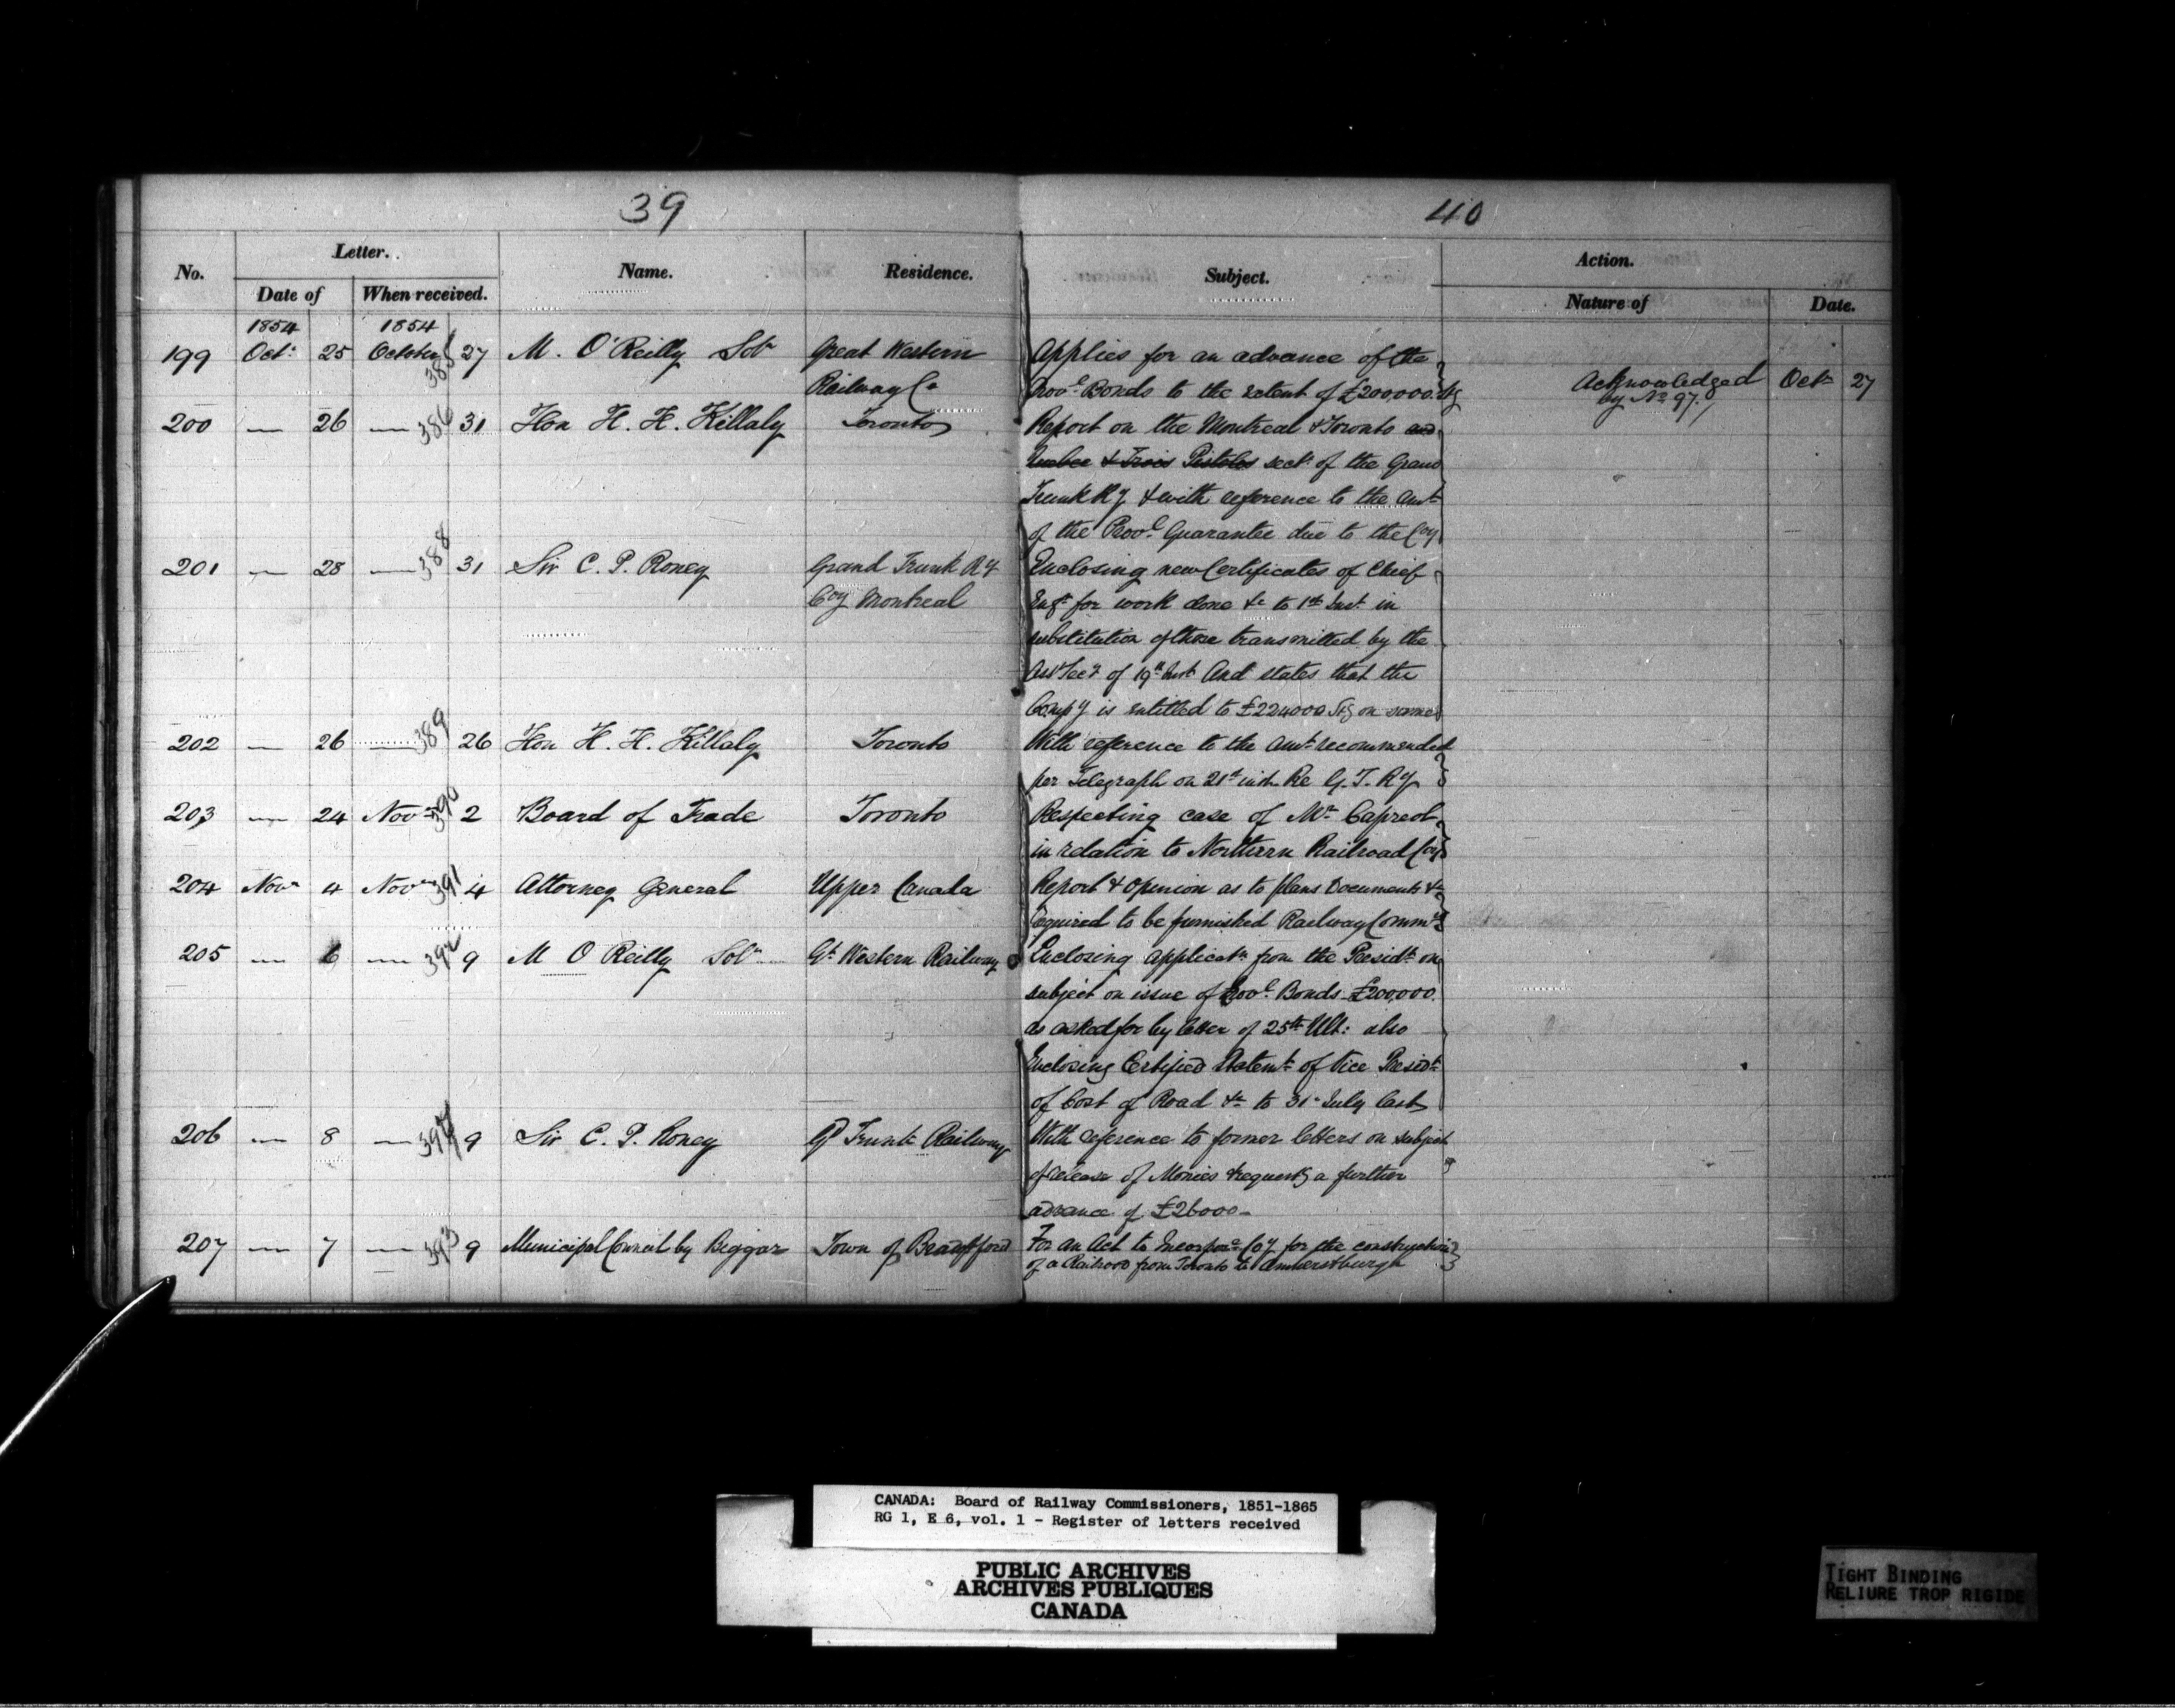 39
40
No.
Letter.
Date of
When received.
Name.
Residence.
Subject.
Action.
Nature of
Date.
1854
1854
199 Octr 25 October 385 27 M. O'Reilly Solr Great Western Applies for an advance of the
Railway Co Provl Bonds to the extent of £200,000 Stg Acknowledged Octr 27
by No 97.
200 — 26 — 386 31 Hon H. H. Killaly Toronto Report on the Montreal & Toronto and
Quebec & Trois Pistoles sect. of the Grand
Trunk Ry & with reference to the Amt
of the Provl Guarantee due to the Coy
201 — 28 — 388 31 Sir C. P. Roney Grand Trunk Ry Enclosing new Certificates of Chief
Coy Montreal Engr for work done &c to 1st Inst. in
substitution of those transmitted by the
Asst Secy of 19th Inst And states that the
Compy is entitled to £224000 Stg on same
202 — 26 — 389 26 Hon H. H. Killaly Toronto With reference to the Amt recommended
per Telegraph on 21st inst. Re G. T. Ry
203 — 24 Novr 390 2 Board of Trade Toronto Respecting case of Mr Capreol
in relation to Northern Railroad Coy
204 Novr 4 Novr 391 4 Attorney General Upper Canada Report & Opinion as to plans Documents &c
required to be furnished Railway Commrs
205 — 6 — 392 9 M O Reilly Solr Gt Western Railway Enclosing applicatn from the Presidt on
subject on issue of Provl Bonds £200,000.
as asked for by letter of 25th Ult: also
Enclosing Certified Statemt of Vice Presidt
of Cost of Road &c to 31st July last
206 — 8 — 394 9 Sir C. P. Roney Gd Trunk Railway With reference to former letters on subject
of release of Monies & requestg a further
advance of £26000 —
207 — 7 — 393 9 Municipal Council by Biggar Town of Brantford For an Act to Incorpore Coy for the construction
of a Railroad from Toronto to Amherstburgh
CANADA: Board of Railway Commissioners, 1851-1865
RG 1, E 6, vol. 1 - Register of letters received
PUBLIC ARCHIVES
ARCHIVES PUBLIQUES
CANADA
TIGHT BINDING
RELIURE TROP RIGIDE